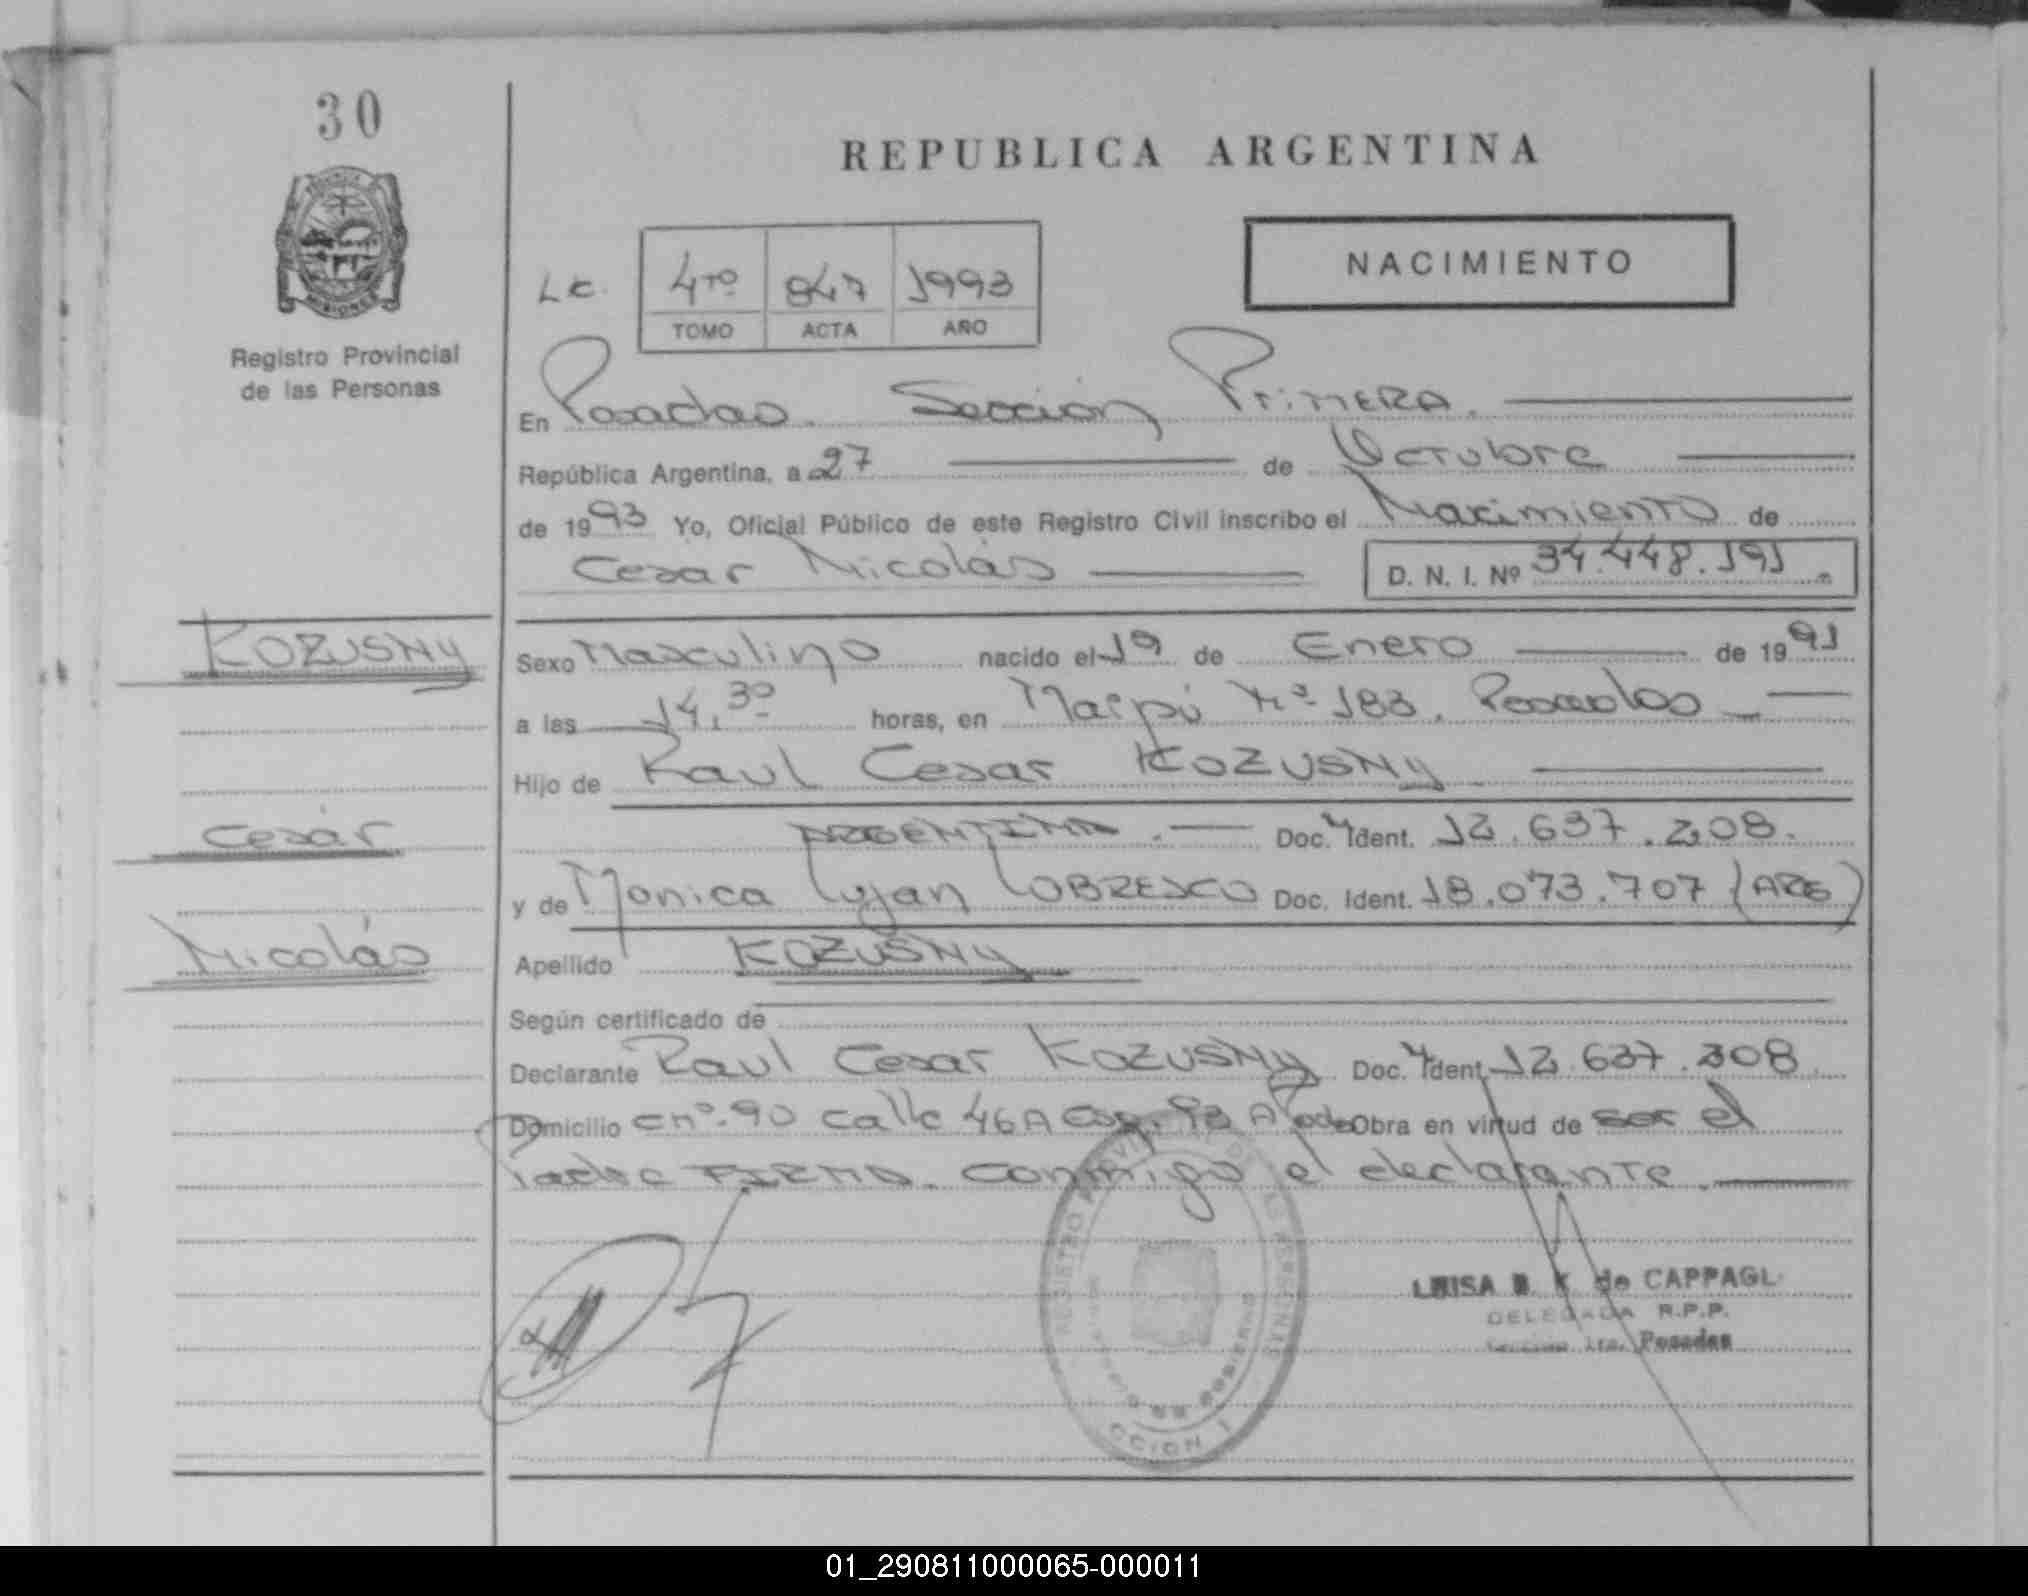 30
REPUBLICA ARGENTINA
NACIMIENTO
4TO 847 1993
TOMO ACTA AÑO
Registro Provincial
de las Personas
En Posadas. Sección Primera.
República Argentina, a 27 de Octubre
de 1993 Yo, Oficial Público de este Registro Civil inscribo el Nacimiento de
Cesar Nicolás D. N. I. Nº 34.448.191
KOZUSNY
Sexo Masculino nacido el 19 de Enero de 1991
a las 14,30 horas, en Maipú Nº 183. Posadas
Hijo de Raul Cesar KOZUSNY
Cesár
ARGENTINA. Doc. Ident. 12.637.208.
y de Monica Lujan LOBRESCO Doc. Ident. 18.073.707 (ARG)
Nicolás
Apellido KOZUSNY
Según certificado de
Declarante Raul Cesar KOZUSNY Doc. Ident. 12.637.208
Domicilio C nº 90 Calle 46A Obra en virtud de ser el
Padre FIRMA. conmigo el declarante.
REGISTRO PROVINCIAL DE LAS PERSONAS
MINISTERIO DE GOBIERNO
LUISA de CAPPAGL
DELEGADA R.P.P.
Seccion 1ra. Posadas
01_290811000065-000011